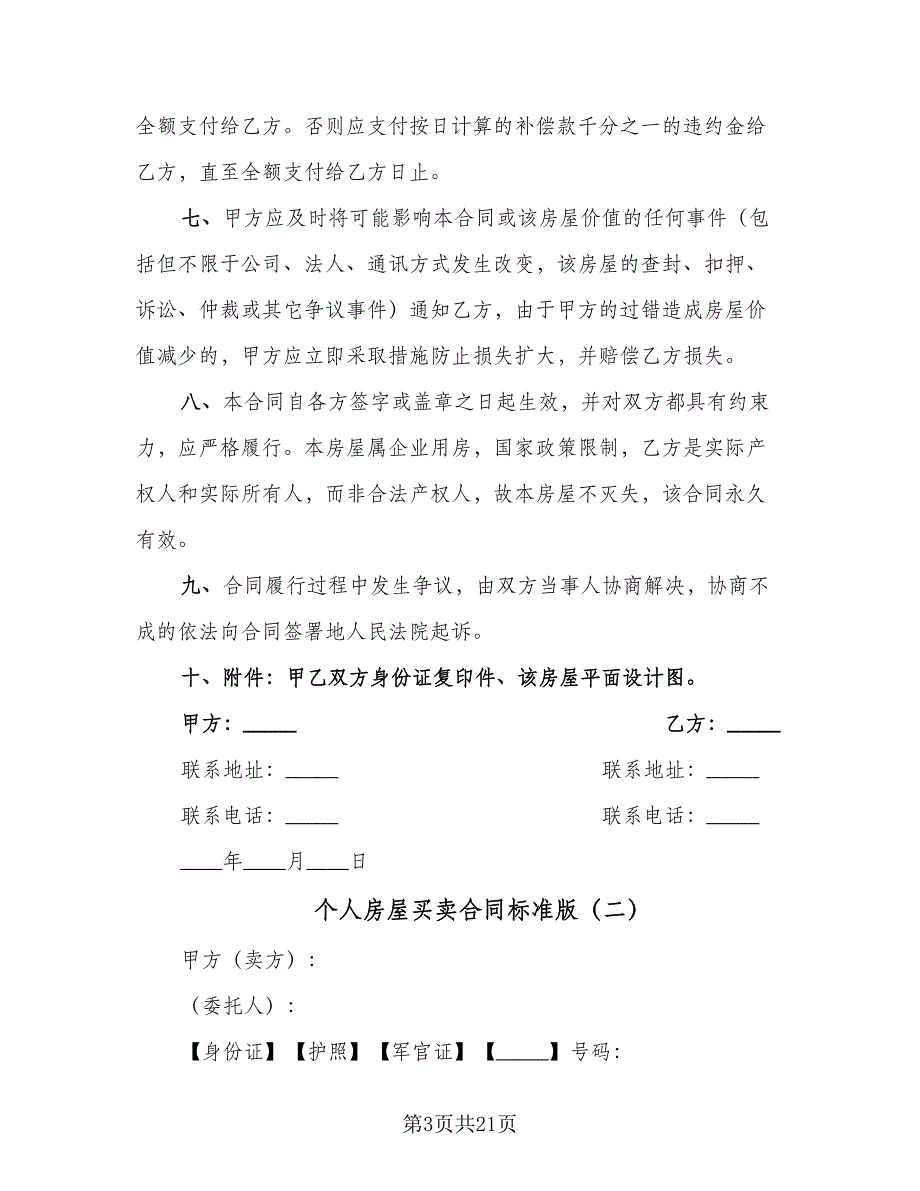 全额支付给乙方。否则应支付按日计算的补偿款千分之一的违约金给
乙方，直至全额支付给乙方日止。
七、甲方应及时将可能影响本合同或该房屋价值的任何事件（包
括但不限于公司、法人、通讯方式发生改变，该房屋的查封、扣押、
诉讼、仲裁或其它争议事件）通知乙方，由于甲方的过错造成房屋价
值减少的，甲方应立即采取措施防止损失扩大，并赔偿乙方损失。
八、本合同自各方签字或盖章之日起生效，并对双方都具有约束
力，应严格履行。本房屋属企业用房，国家政策限制，乙方是实际产
权人和实际所有人，而非合法产权人，故本房屋不灭失，该合同永久
有效。
九、合同履行过程中发生争议，由双方当事人协商解决，协商不
成的依法向合同签署地人民法院起诉。
十、附件：甲乙双方身份证复印件、该房屋平面设计图。
甲方：_____ 乙方：_____
联系地址：_____ 联系地址：_____
联系电话：_____ 联系电话：_____
____年____月____日
个人房屋买卖合同标准版（二）
甲方（卖方）：
（委托人）：
【身份证】【护照】【军官证】【_____】号码：
第3页共21页